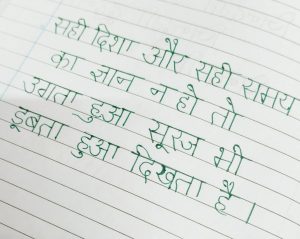 सही दिशा और सही समय
का ज्ञान न हो तो
उगता हुआ सूरज भी
डूबता हुआ दिखता है।